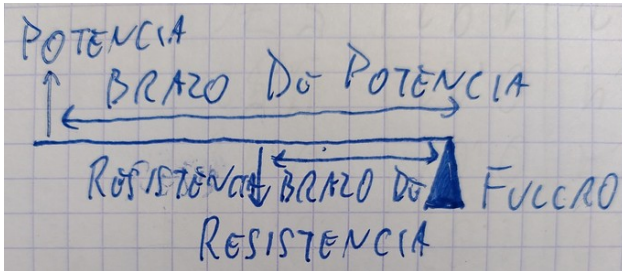 POTENCIA
BRAZO DE POTENCIA
RESISTENCIA BRAZO DE FULCRO
RESISTENCIA